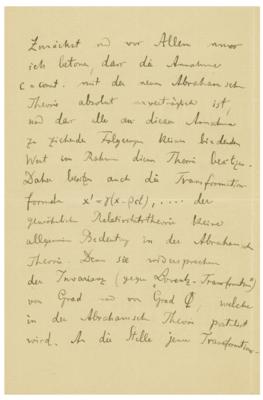 Zunächst und vor Allem muss
ich betonen, dass die Annahme
c = const. mit der neuen Abrahamschen
Theorie absolut unverträglich ist,
und dass alle aus dieser Annahme
zu ziehende Folgerungen keinen bindenden
Wert im Rahmen dieser Theorie besitzen.
Daher besitzen auch die Transformation
formeln x' = γ(x - βct), .... der
gewöhnlichen Relativitätstheorie keine
allgemeine Bedeutung in der Abrahamsch
Theorie. Denn sie widersprechen
der Invarianz (gegen Lorentz-Transformation)
von Grad und von Grad φ, welche
in der Abrahamsch Theorie postuliert
wird. An die Stelle jener Transformation-